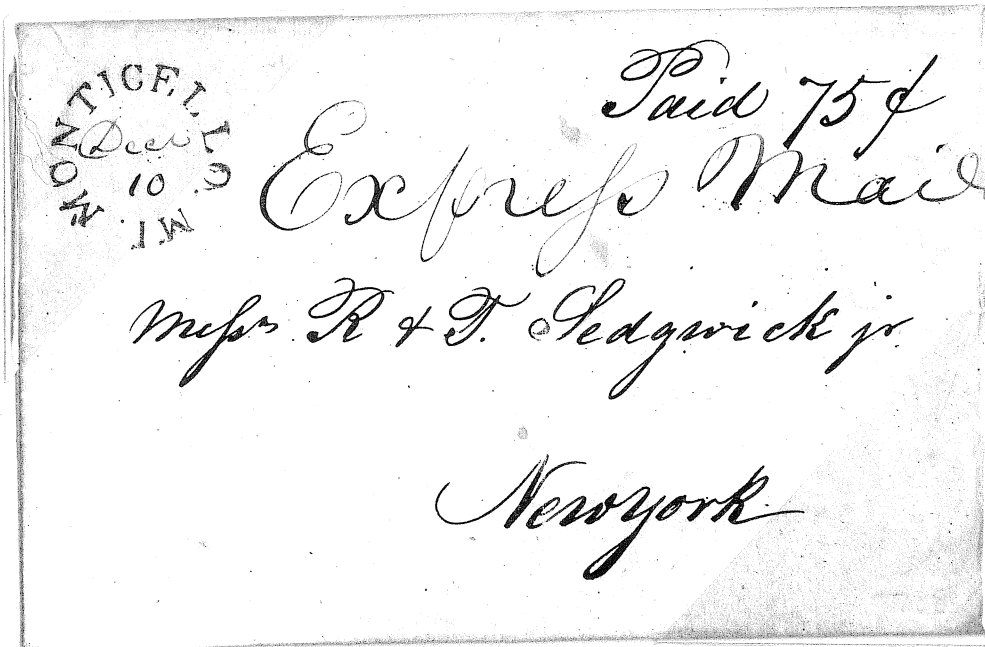 MONTICELLO. MI.
Decr
10
Paid 75¢
Express Mail
Messrs R & T. Sedgwick jr.
New york